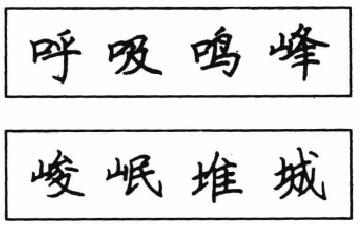 呼吸鸣峰
峻岷堆城